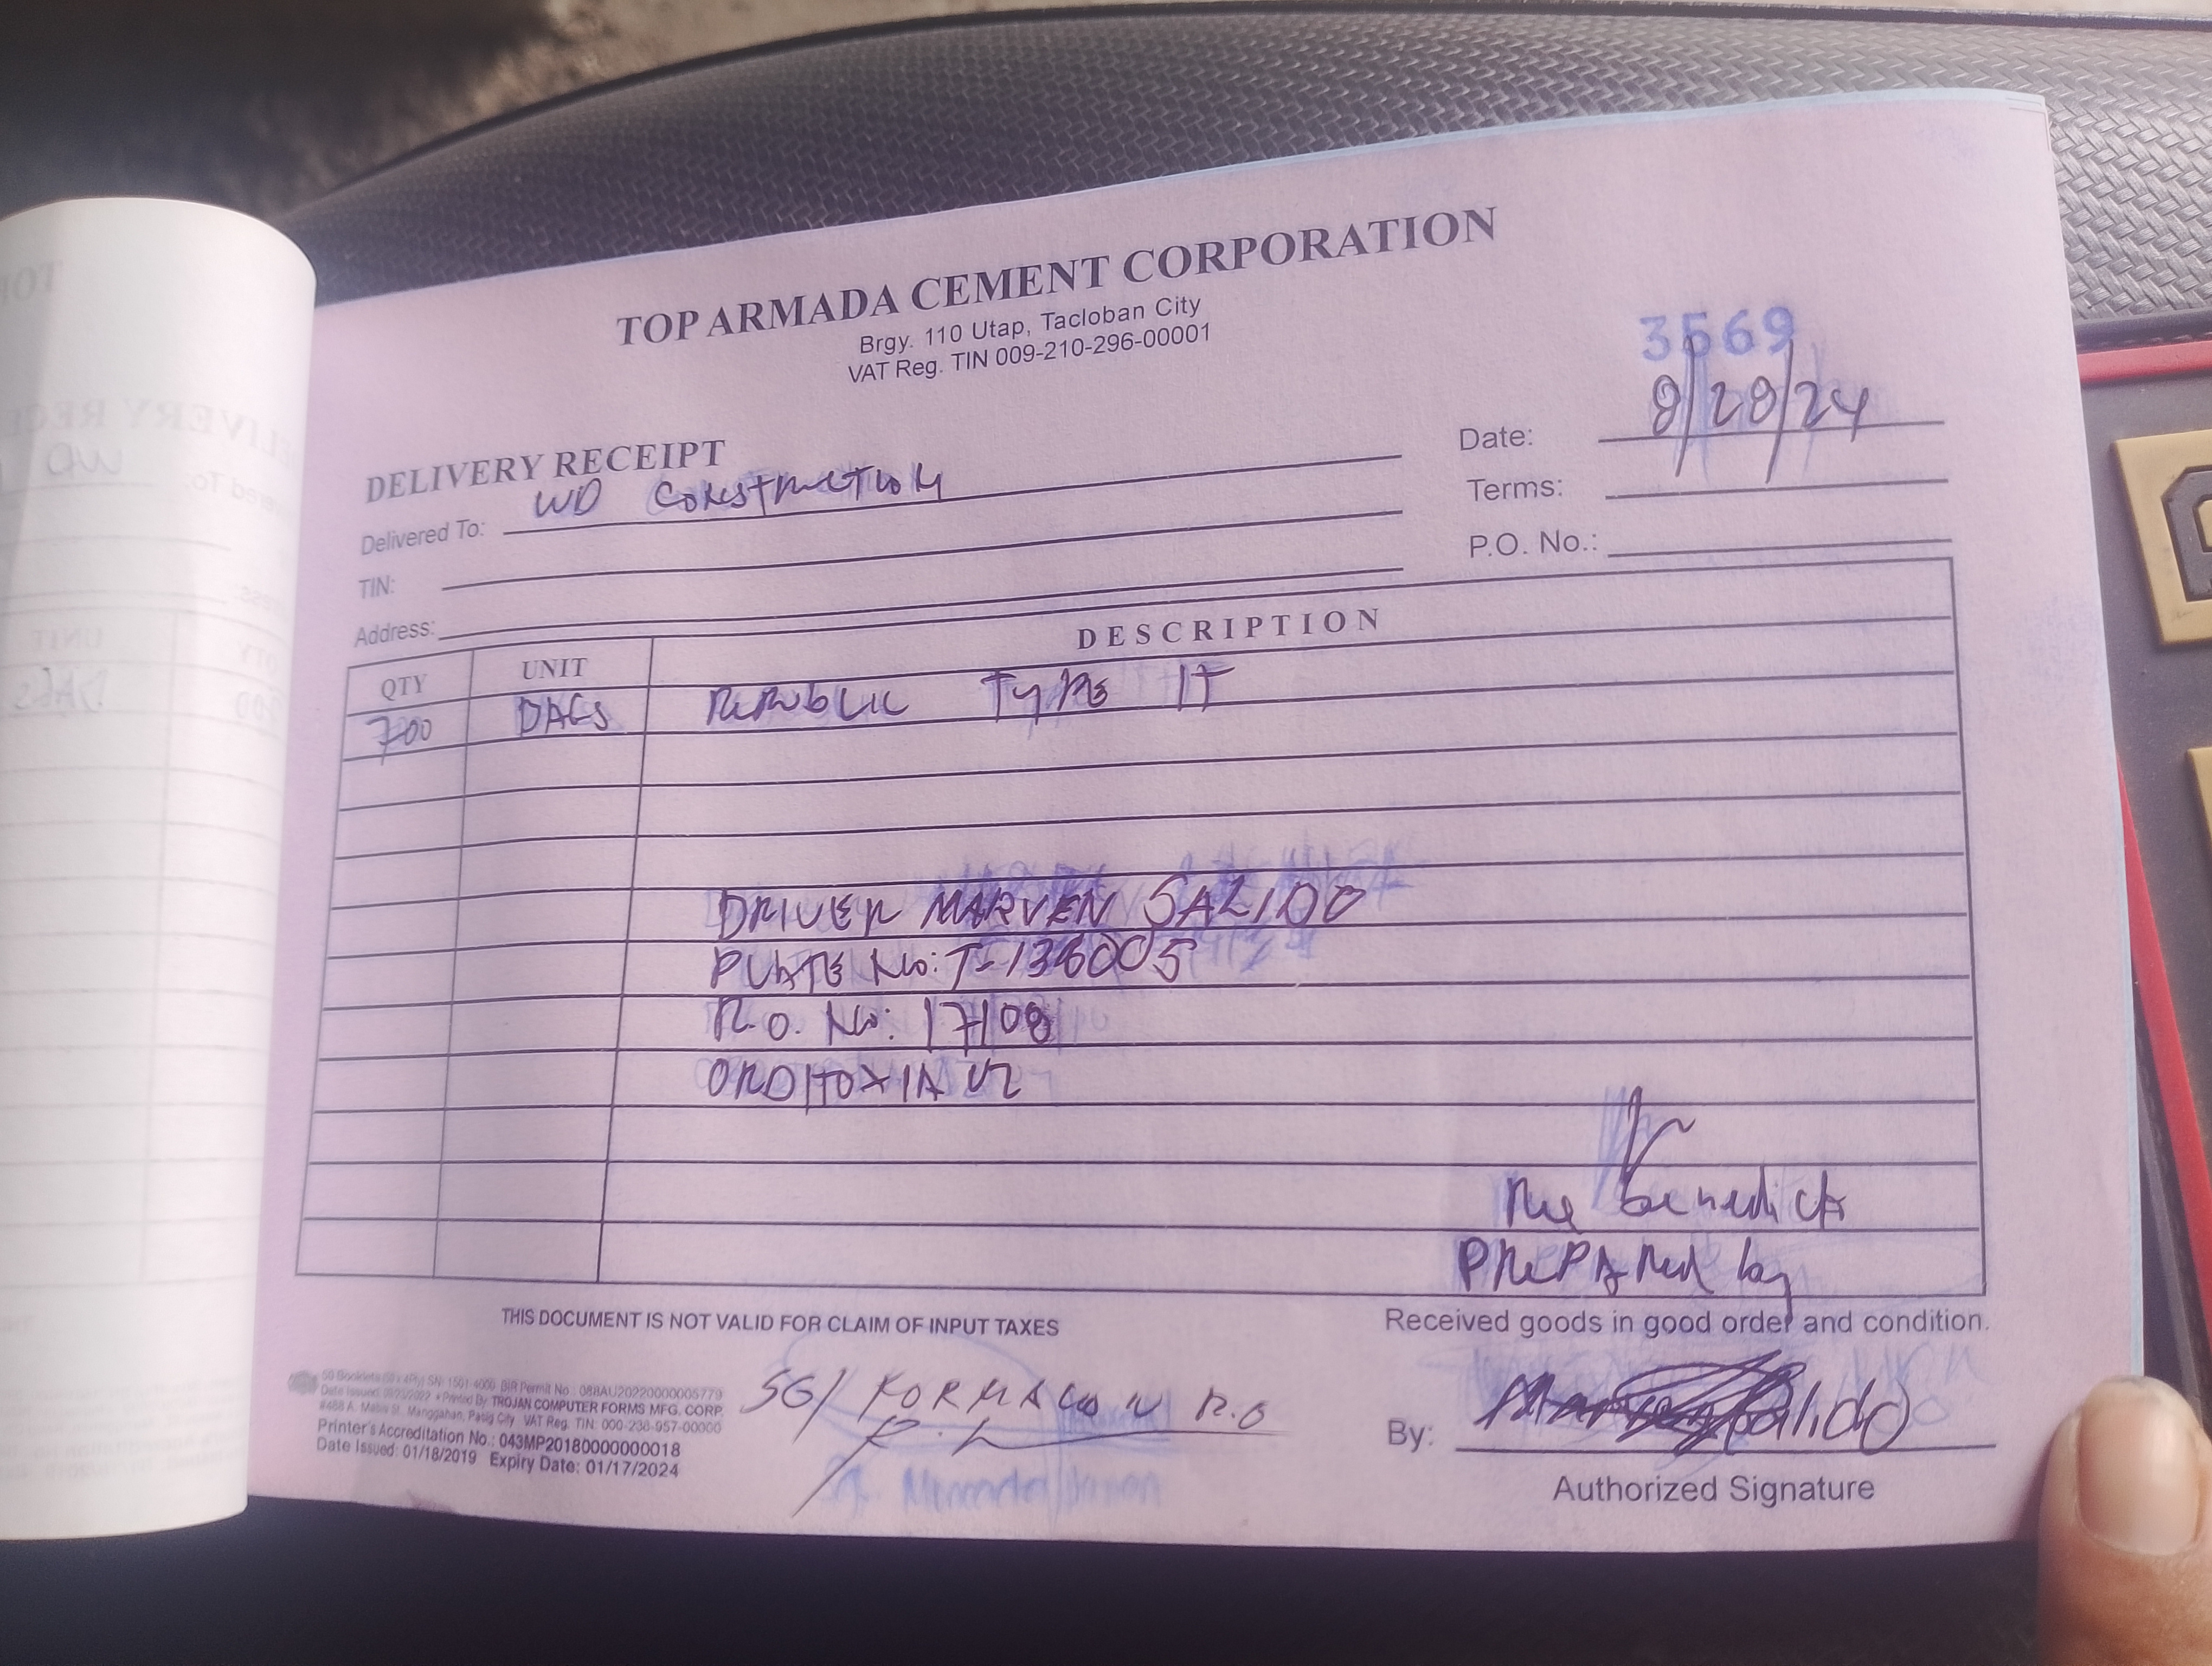 TOP ARMADA CEMENT CORPORATION
Brgy. 110 Utap, Tacloban City
VAT Reg. TIN 009-210-296-00001
3569
DELIVERY RECEIPT
Date: 8/28/24
Delivered To: WD CONSTRUCTION
Terms:
TIN:
P.O. No.:
Address:
QTY UNIT DESCRIPTION
700 BAGS REPUBLIC TYPE 1T
DRIVER MARVEN SALIDO
PLATE No: T-136005
R.O. No: 17108
The benedicta
PREPARED by
THIS DOCUMENT IS NOT VALID FOR CLAIM OF INPUT TAXES
Received goods in good order and condition.
50 Booklets (50 x 4Ply) SN: 1501-4000 BIR Permit No.: 088AU20220000005779
Printed By: TROJAN COMPUTER FORMS MFG. CORP.
#488 A. Mabini St. Manggahan, Pasig City VAT Reg. TIN: 000-238-957-00000
Printer's Accreditation No.: 043MP20180000000018
Date Issued: 01/18/2019 Expiry Date: 01/17/2024
SG/ FORMACION R.O
By: Marven Salido
Authorized Signature